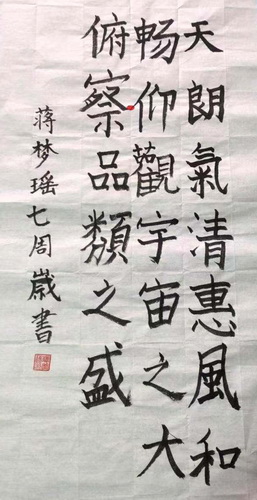 天朗氣清惠風和
暢仰觀宇宙之大
俯察品類之盛
蒋梦瑶七周歲書